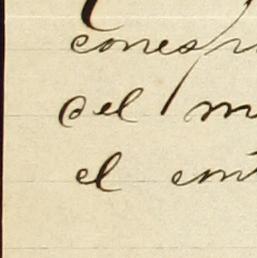 corresp
del m
el em